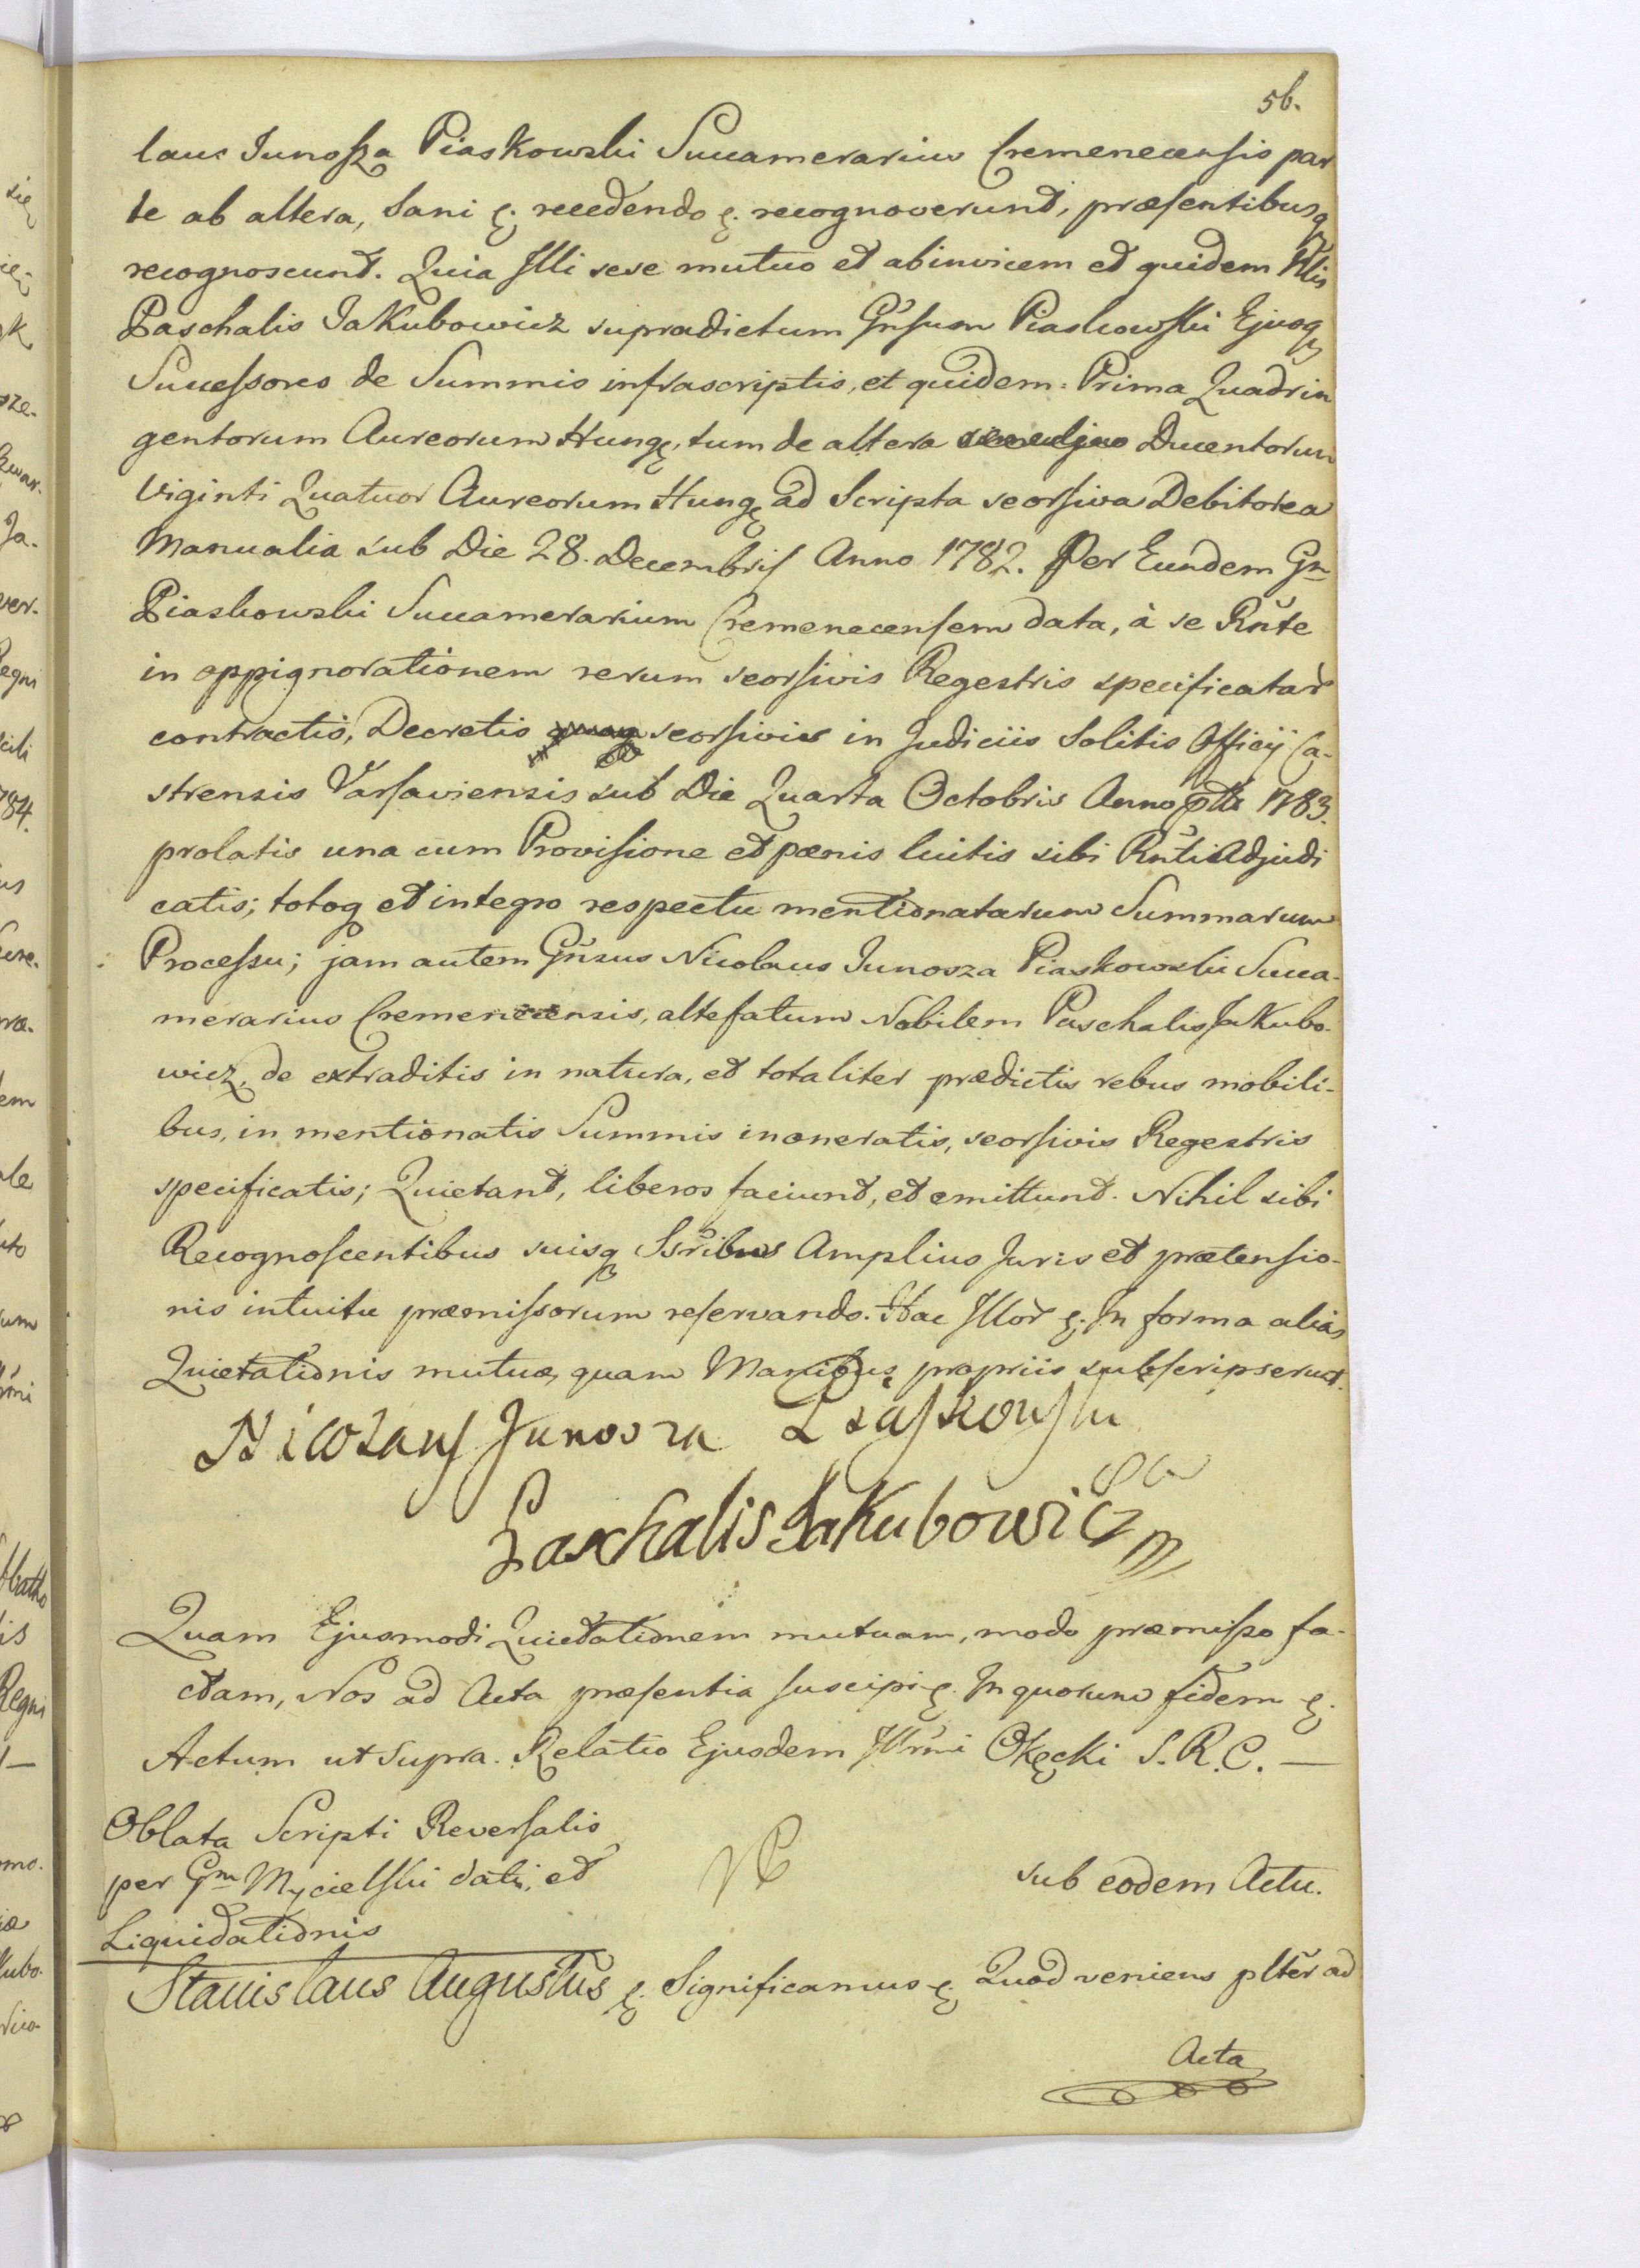 56.
laus Junosza Piaskowski Succamerarius Cremenecensis par
te ab altera, Sani &. recedendo &. recognoverunt, præsentibusq
recognoscunt. Quia Illi sese mutuo et abinvicem et quidem Nlis
Paschalis Jakubowicz supradictum Gnsum Piaskowski Ejusq
Successores de Summis infrascriptis, et quidem: Prima Quadrin
gentorum Aureorum Hung, tum de altera Ducentorum
Viginti Quatuor Aureorum Hung ad Scripta seorsiva Debitorea
Manualia sub Die 28. Decembris Anno 1782. Per Eundem Gn
Piaskowski Succamerarium Cremenecensem data, à se Rnte
in oppignorationem rerum seorsivis Regestris specificatar
contractis, Decretis seorsivis in Judiciis Solitis Officij Ca-
strensis Varsaviensis sub Die Quarta Octobris Anno 1783.
prolatis una cum Provisione et pœnis luitis sibi Rnti Adjudi
catis; totoq et integro respectu mentionatarum Summarum
Processu; jam autem Gnsus Nicolaus Junosza Piaskowski Succa-
merarius Cremenecensis, altefatum Nobilem Paschalis Jakubo-
wicz, de extraditis in natura, et totaliter prædictis rebus mobili-
bus, in mentionatis Summis inoneratis, seorsivis Regestris
specificatis; Quietant, liberos faciunt, et emittunt. Nihil sibi
Recognoscentibus suisq Ssribus Amplius Juris et prætensio-
nis intuitu præmissorum reservando. Hac Illor &. In forma alias
Quietationis mutuæ, quam Manibus propriis subscripserunt.
Nicolaus Junosza Piaskowski
Paschalis Jakubowicz
Quam Ejusmodi Quietationem mutuam, modo præmisso fa-
ctam, Nos ad Acta præsentia suscipi &. In quorum fidem &.
Actum ut supra. Relatio Ejusdem Illrmi Okęcki S. R. C. —
Oblata Scripti Reversalis
per Gm Mycielski dati, et
Liquidationis
sub eodem Actu.
Stanislaus Augustus &. Significamus &. Quod veniens plter ad
Acta